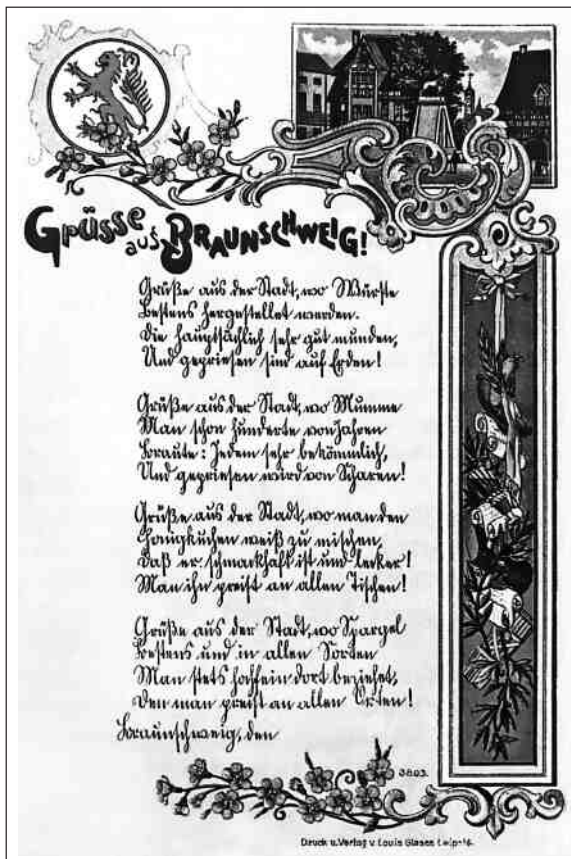 Grüsse
aus BRAUNSCHWEIG!
Grüße aus der Stadt, wo Würste
Bestens hergestellet werden.
Die hauptsächlich sehr gut munden,
Und gepriesen sind auf Erden!
Grüße aus der Stadt, wo Mumme
Man schon hunderte von Jahren
Braute: Jedem sehr bekömmlich,
Und gepriesen wird von Scharen!
Grüße aus der Stadt, wo man den
Honigkuchen weiß zu mischen,
Daß er schmackhaft ist und lecker!
Man ihn preist an allen Tischen!
Grüße aus der Stadt, wo Spargel
Bestens und in allen Sorten
Man stets hochfein dort beziehet,
Den man preist an allen Orten!
Braunschweig, den
3803.
Druck u. Verlag v. Louis Glaser Leipzig.